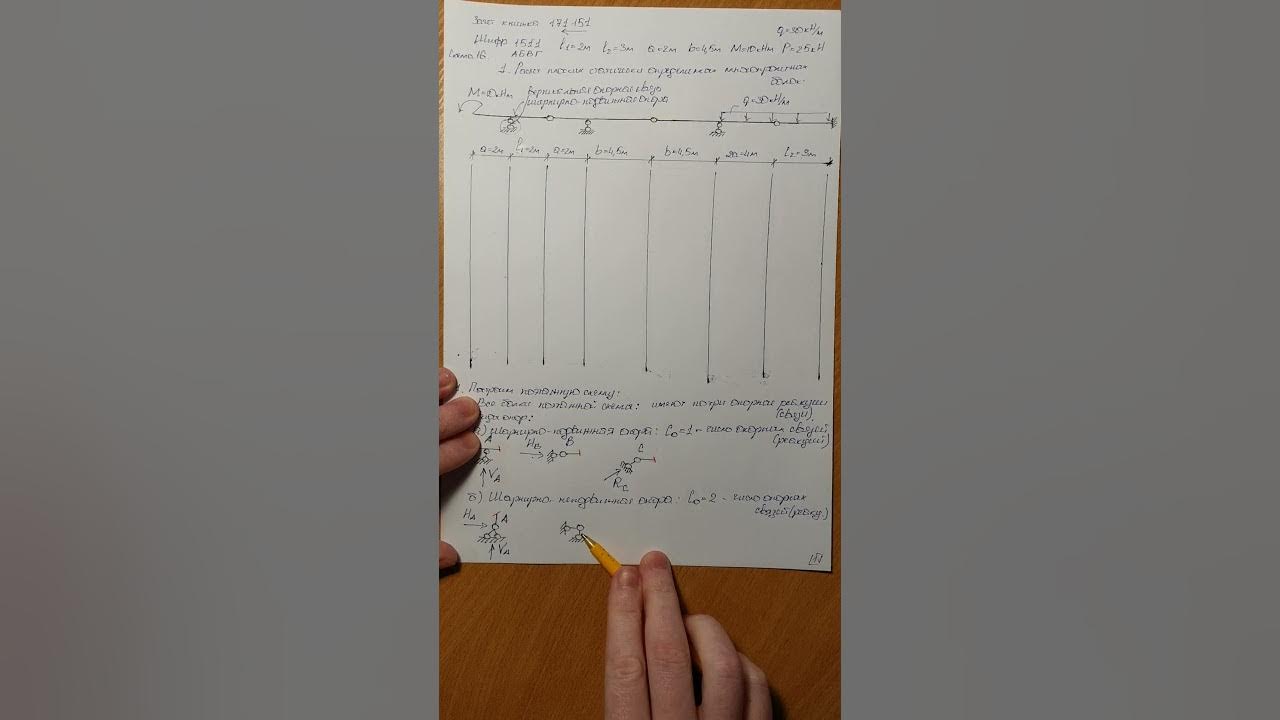 Зачет книжка 171151
q=30кН/м
Шифр 1511 l₁=2м l₂=3м a=2м b=4,5м M=10кНм P=25кН
Схема 16 АБВГ
1. Расчет плоских статически определимых многопролетных
балок.
M=10кНм вертикальная опорная связь
шарнирно-подвижная опора q=30кН/м
a=2м l₁=2м a=2м b=4,5м b=4,5м 2a=4м l₂=3м
Построим поэтажную схему:
Все балки поэтажной схемы: имеют по три опорные реакции
(связи)
опор:
а) Шарнирно-подвижная опора: C₀=1 - число опорных связей
(реакций)
A H_B B C
V_A R_C
б) Шарнирно-неподвижная опора: C₀=2 - число опорных
связей (реакц.)
H_A A
V_A